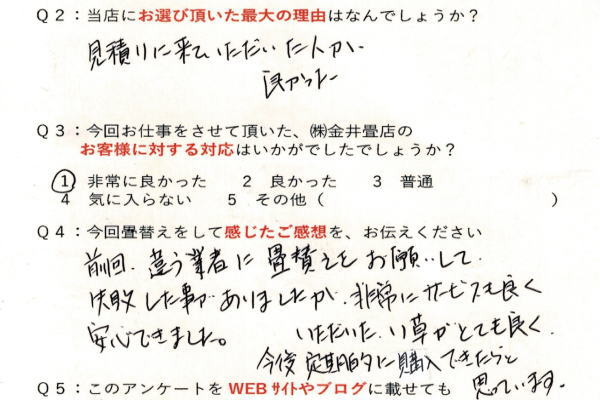 Q２：当店にお選び頂いた最大の理由はなんでしょうか？
見積りに来ていただいた人が、
良かった
Q３：今回お仕事をさせて頂いた、㈱金井畳店の
お客様に対する対応はいかがでしたでしょうか？
① 非常に良かった　２　良かった　３　普通
４　気に入らない　５　その他（　　　　　　　　　　）
Q４：今回畳替えをして感じたご感想を、お伝えください
前回、違う業者に畳替えをお願いして、
失敗した事がありましたが、非常にサービスも良く
安心できました。　いただいた、い草がとても良く、
今後定期的に購入できたらと
思っています。
Q５：このアンケートをWEBサイトやブログに載せても